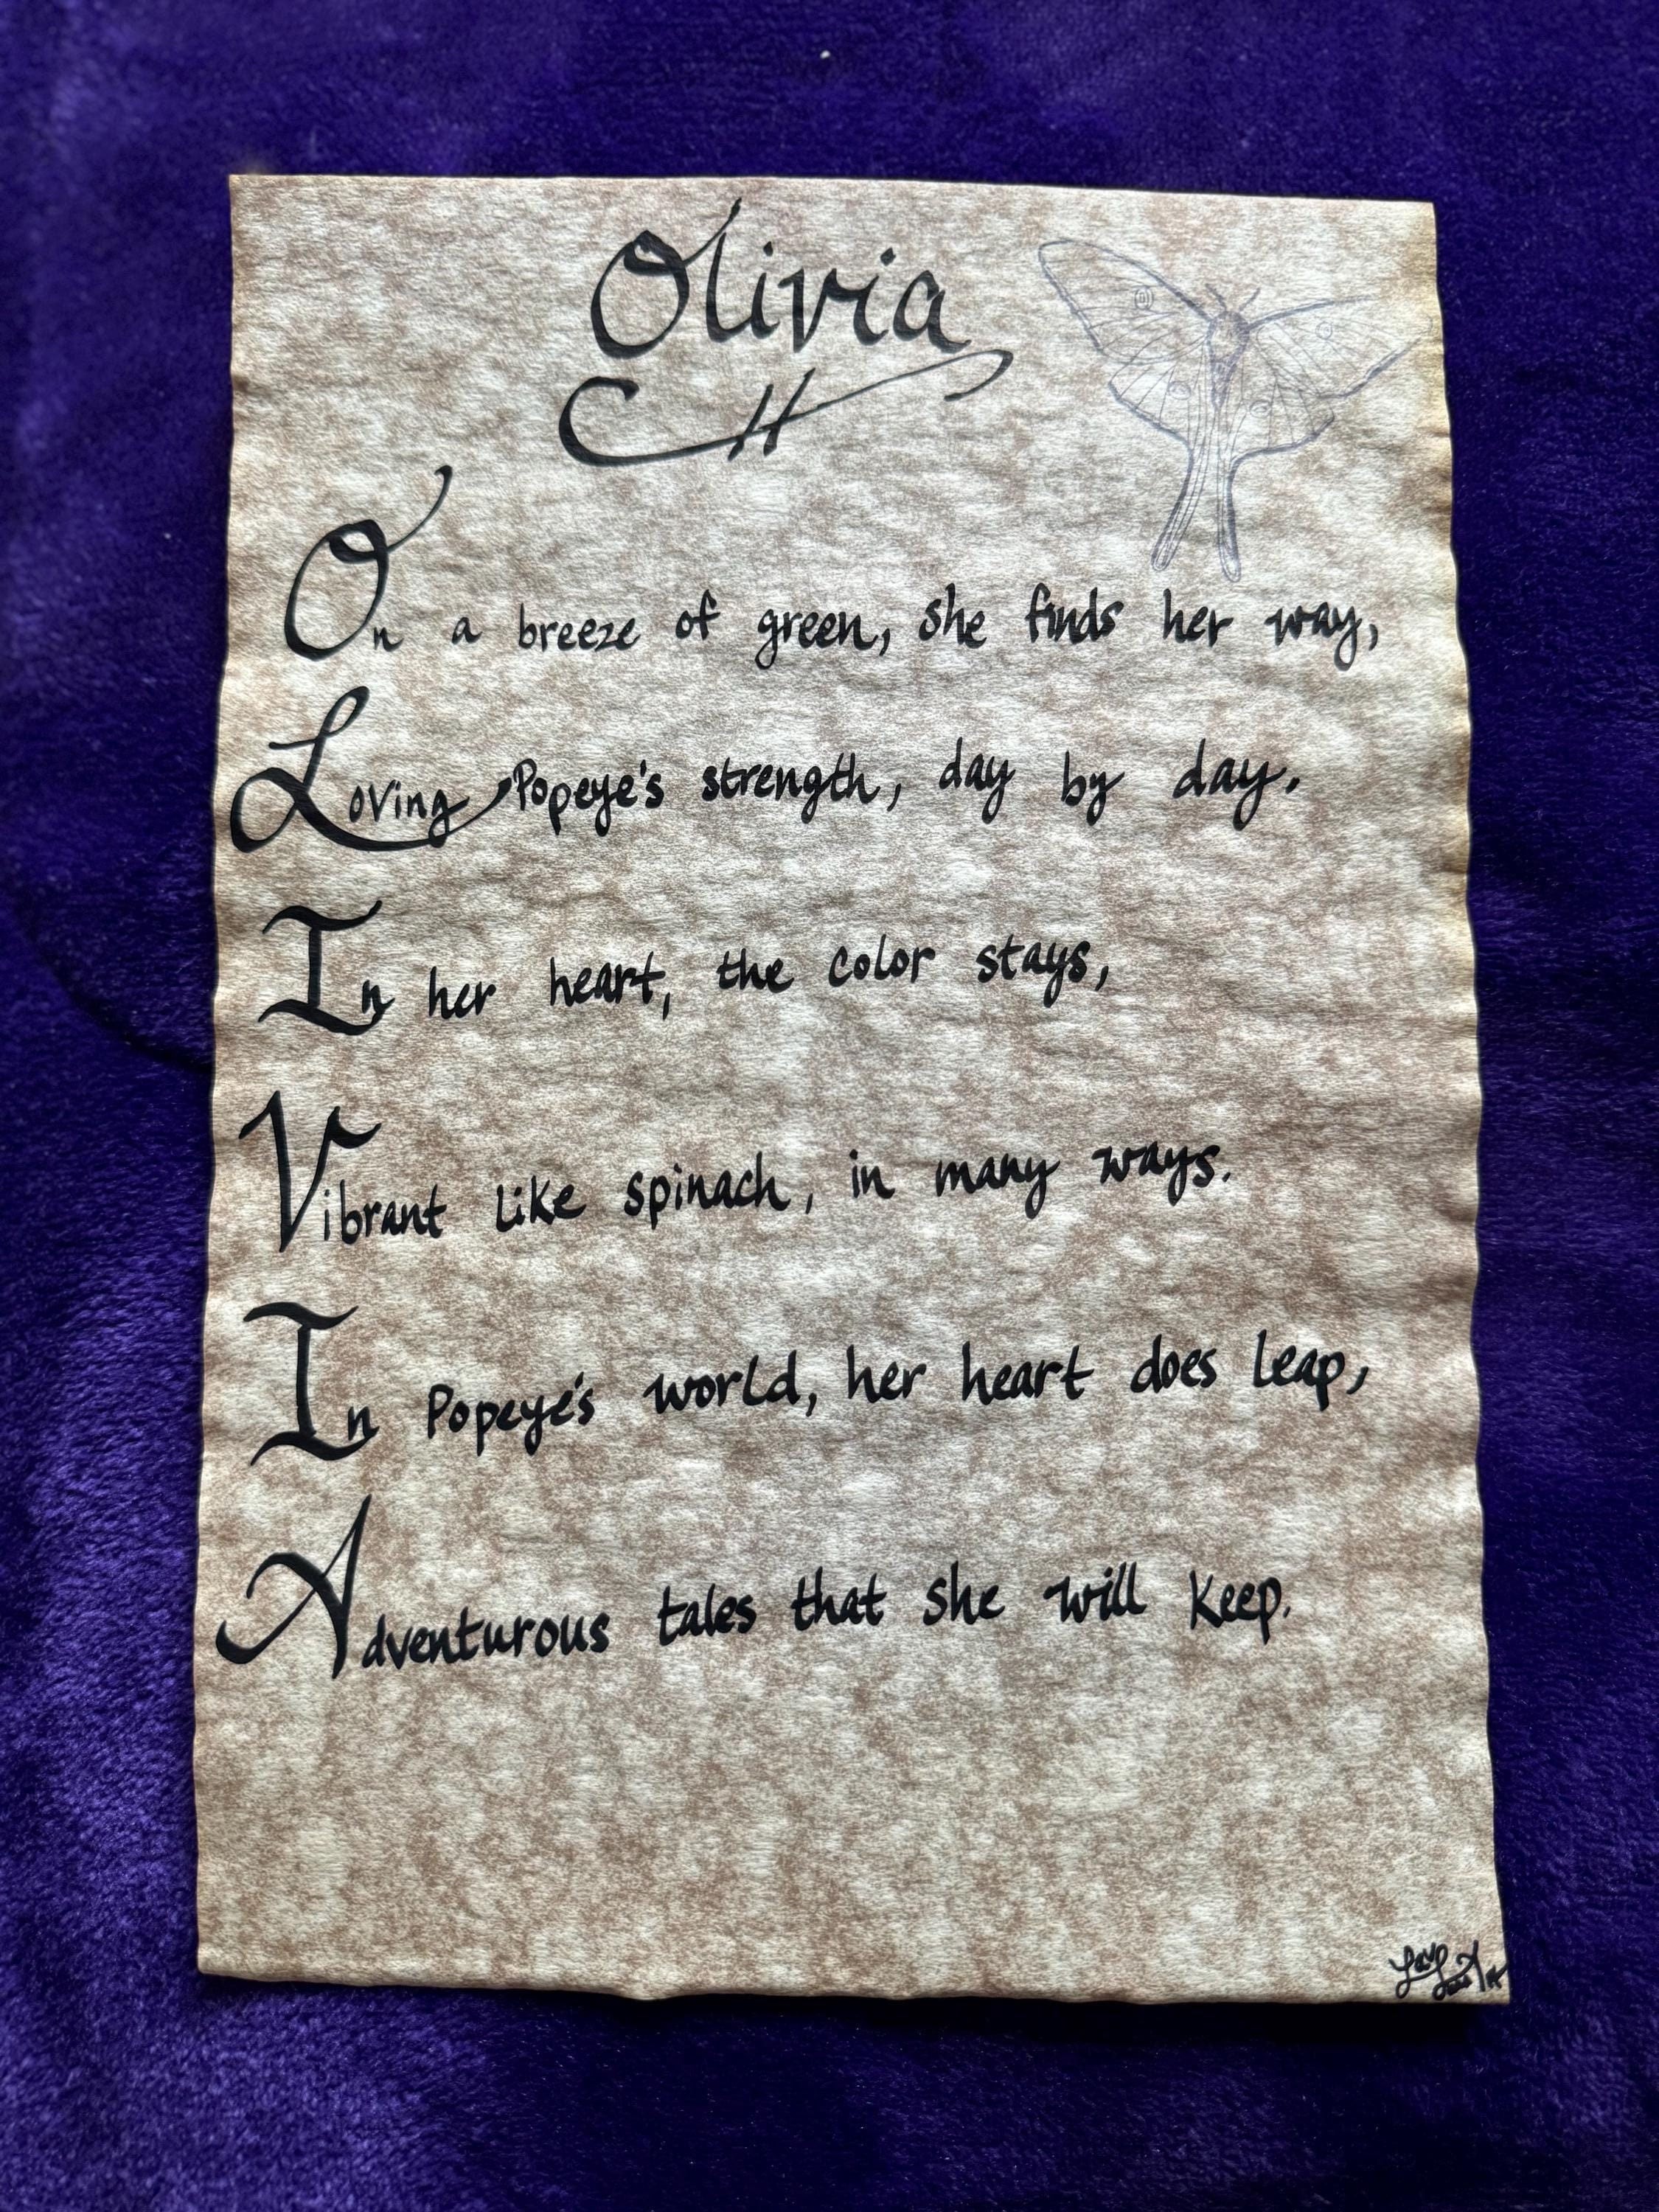 Olivia
On a breeze of green, she finds her way,
Loving Popeye's strength, day by day.
In her heart, the color stays,
Vibrant like spinach, in many ways.
In Popeye's world, her heart does leap,
Adventurous tales that she will keep.